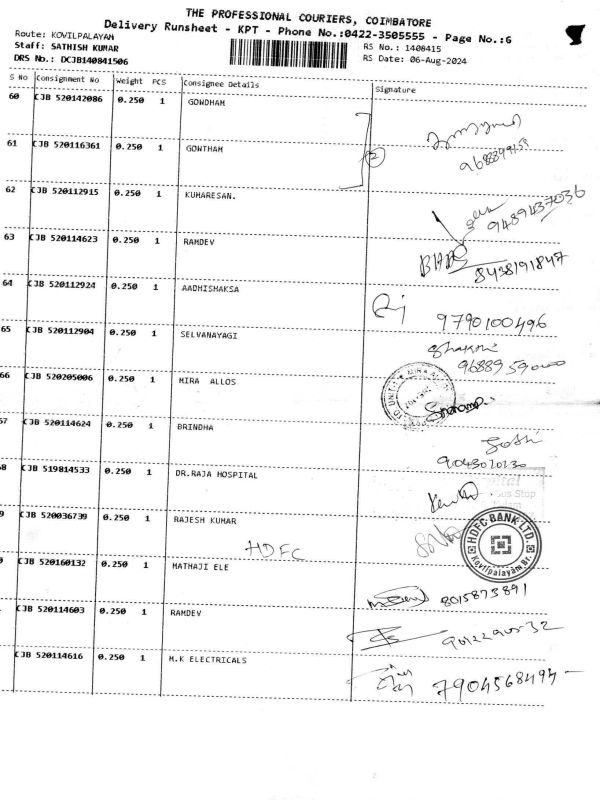 THE PROFESSIONAL COURIERS, COIMBATORE
Delivery Runsheet - KPT - Phone No.:0422-3505555 - Page No.:6
Route: KOVILPALAYAM
RS No.: 1408415
Staff: SATHISH KUMAR
RS Date: 06-Aug-2024
DRS No.: DCJB140841506
S No Consignment No Weight PCS Consignee Details Signature
60 CJB 520142086 0.250 1 GOWDHAM
61 CJB 520116361 0.250 1 GOWTHAM
2
62 CJB 520112915 0.250 1 KUMARESAN.
9489437036
63 CJB 520114623 0.250 1 RAMDEV
8438191847
64 CJB 520112924 0.250 1 AADHISHAKSA
9790100496
65 CJB 520112904 0.250 1 SELVANAYAGI
66 CJB 520205006 0.250 1 MIRA ALLOS
67 CJB 520114624 0.250 1 BRINDHA
68 CJB 519814533 0.250 1 DR.RAJA HOSPITAL
Bus Stop
9 CJB 520036739 0.250 1 RAJESH KUMAR
HDFC
HDFC BANK LTD.
Kovilpalayam Br.
0 CJB 520160132 0.250 1 MATHAJI ELE
8015873891
CJB 520114603 0.250 1 RAMDEV
CJB 520114616 0.250 1 M.K ELECTRICALS
7904568494